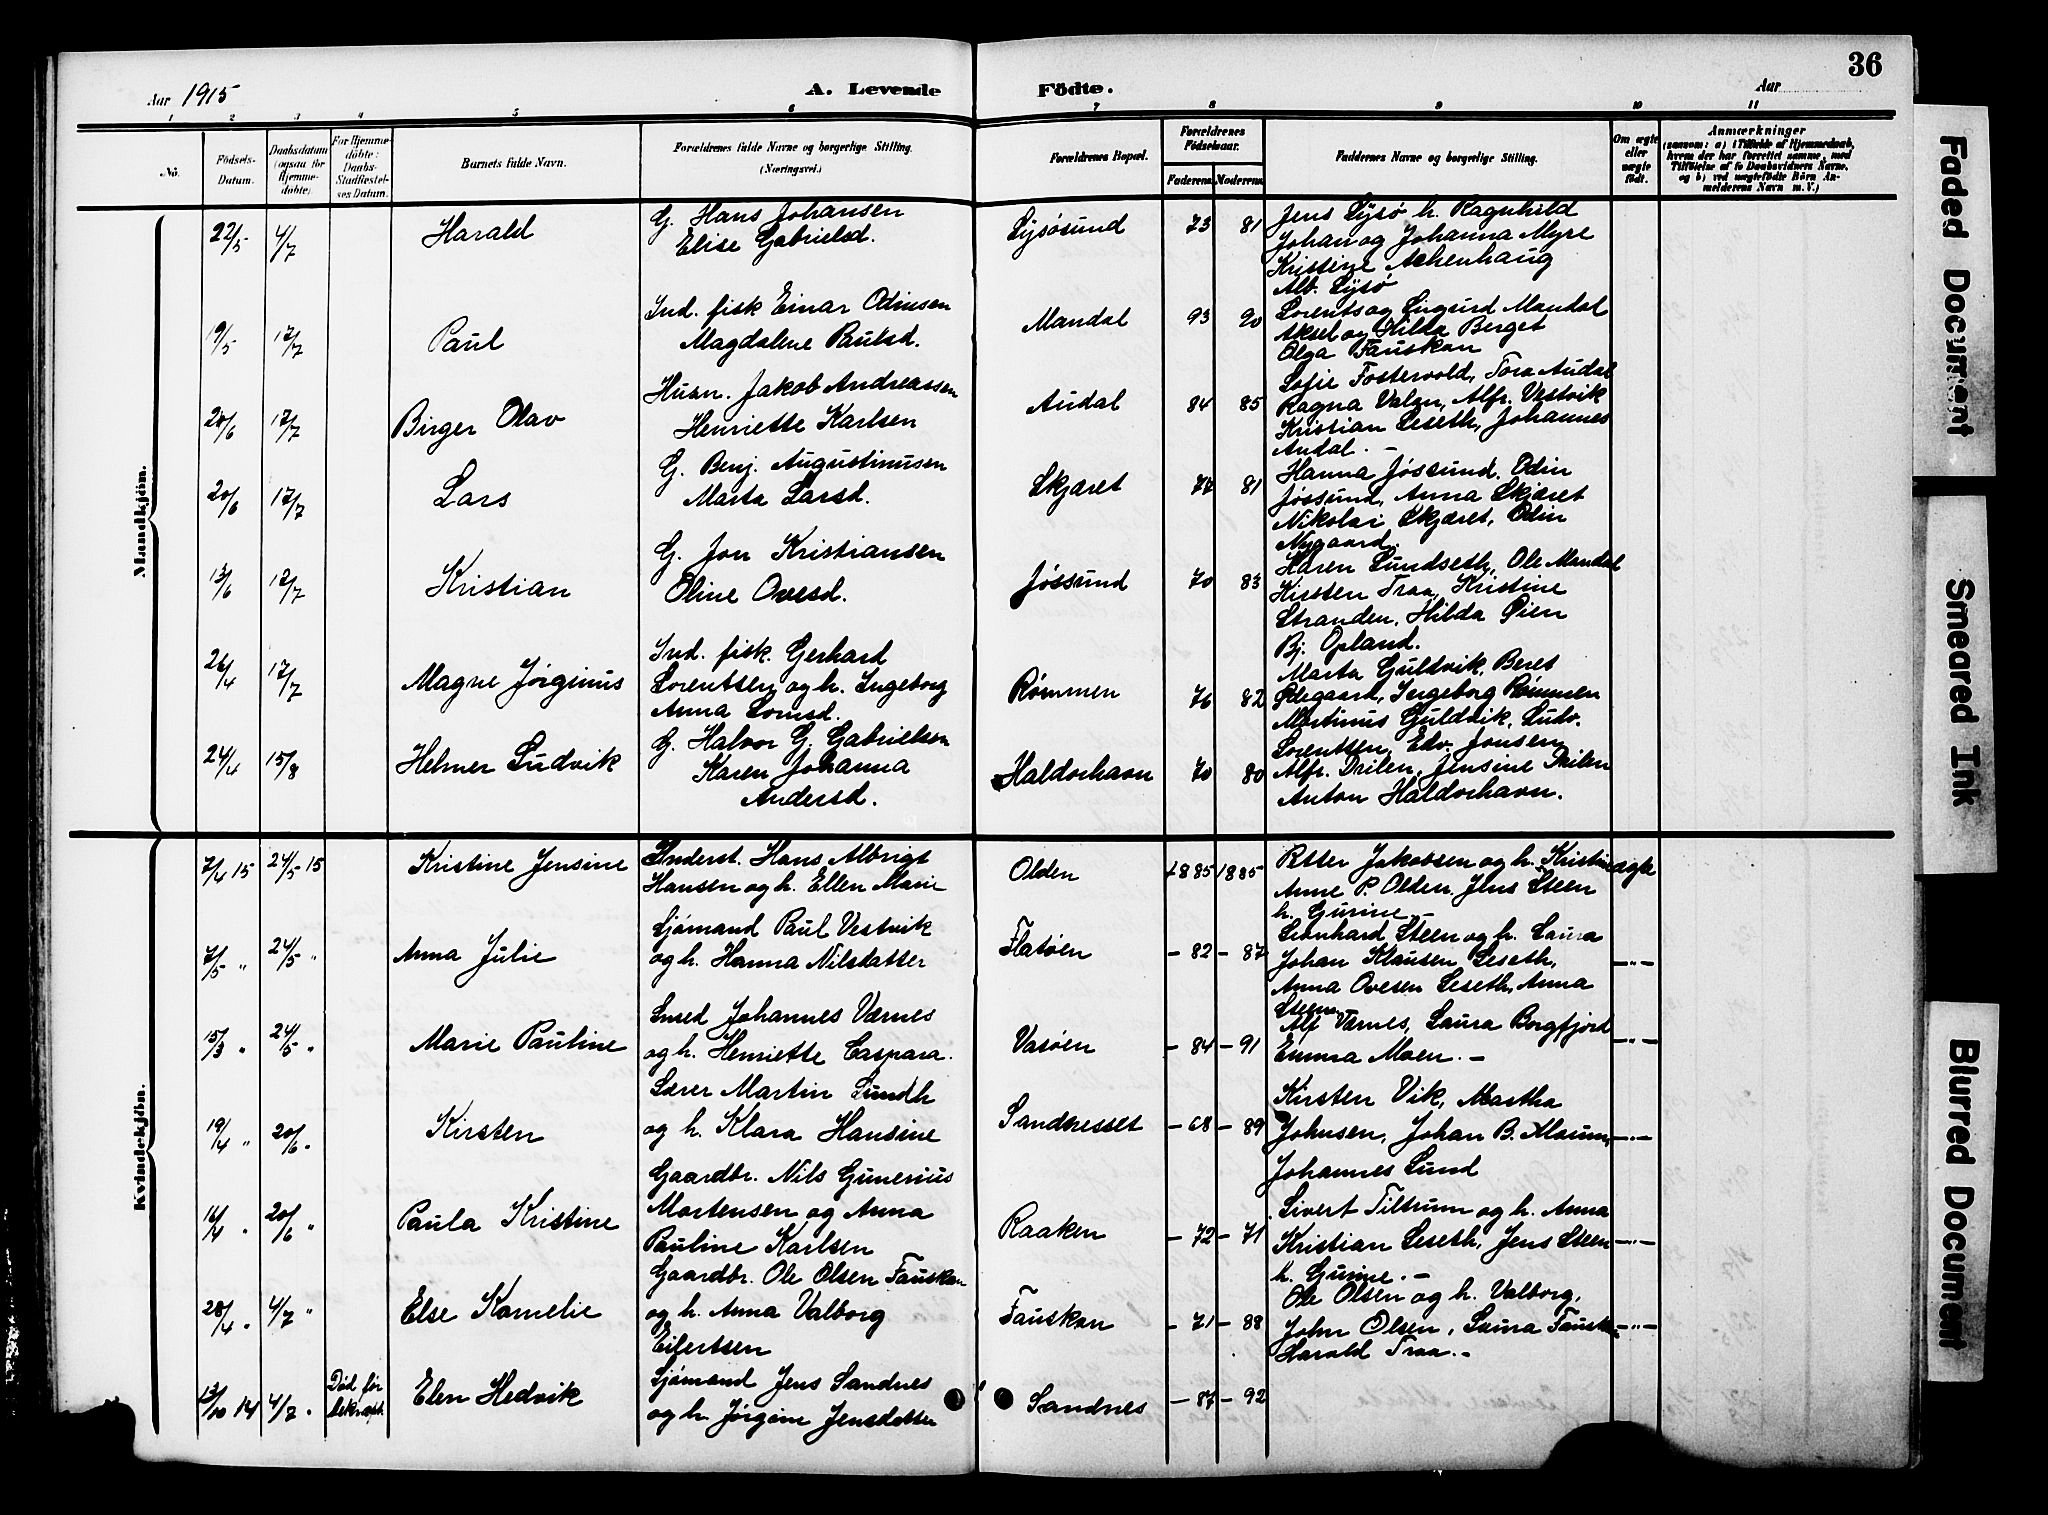 36
Aar 1915
A. Levende
Födte.
Aar
1 2 3 4 5 6 7 8 9 10 11
No.
Födsels-Datum.
Daabsdatum (ogsaa for Hjemmedöbte).
For Hjemmedöbte: Daabs-Stadfæstelses Datum.
Barnets fulde Navn.
Forældrenes fulde Navne og borgerlige Stilling. (Næringsvei.)
Forældrenes Bopæl.
Forældrenes Födselsaar.
Faderens. Moderens.
Faddernes Navne og borgerlige Stilling.
Om ægte eller uægte födt.
Anmærkninger
(saasom: a) i Tilfælde af Hjemmedaab, hvem der har forrettet samme, med Tilföielse af to Daabsvidners Navne, og b) ved uægtefödte Börn Anmelderens Navn m. V.)
Mandkjön.
22/5 4/7 Harald
G. Hans Johansen
Elise Gabrielsd.
Lysøsund 73 81
Jens Lysø h. Ragnhild
Johan og Johanna Myre
Kristine Achenhaug
Alb. Lysø
19/5 17/7 Paul
Ind. fisk Einar Odinsen
Magdalene Paulsd.
Mandal 93 90
Lorents og Sigurd Mandal
Aksel og Hilda Berget
Olga Fauskan
20/6 17/7 Birger Olav
Husm. Jakob Andreassen
Henriette Karlsen
Audal 84 85
Sofie Fostervold, Tora Audal
Ragna Valen, Alfr. Vestvik
Kristian Leseth, Johannes
Audal. -
20/6 17/7 Lars
G. Benj. Augustinusen
Marta Larsd.
Skjæret 77 81
Hanna Jøssund, Odin
Jøssund, Anna Skjæret
Nikolai Skjæret, Odin
Nygaard.
13/6 17/7 Kristian
G. Jon Kristiansen
Oline Ovesd.
Jøssund 70 83
Karen Sundseth, Ole Mandal
Kirsten Traa, Kristine
Stranden, Hilda Øien
Bj. Opland.
26/4 17/7 Magne Jørginus
Ind. fisk. Gerhard
Lorentsen og h. Ingeborg
Anna Lornsd.
Rømmen 76 82
Marta Guldvik, Beret
Ødegaard, Ingeborg Rømmen
Martinus Guldvik, Ludv.
Lorentsen, Edv. Jonsen
24/4 15/8 Helmer Ludvik
G. Halvor G. Gabrielsen
Karen Johanna
Andersd.
Haldorhavn 70 80
Alfr. Drilen, Jensine Drilen
Anton Haldorhavn.
Kvindekjön.
7/4 15 24/5 15 Kristine Jensine
Inderst. Hans Albrigt
Hansen og h. Ellen Marie
Olden 1885 1885
Petter Jakobsen og h. Kristine ægte
Anne P. Olden. Jens Steen
h. Gurine. -
7/5 " 24/5 " Anna Julie
Sjømand Paul Vestvik
og h. Hanna Nilsdatter
Flatøen - 82 - 87
Leonhard Steen og h. Laura
Johan Klausen Leseth, -"-
Anna Ovesen Leseth, Anna
Steen
15/3 " 24/5 " Marie Pauline
Smed Johannes Værnes
og h. Henriette Caspara.
Vasøen - 84 - 91
Alf Værnes, Laura Borgfjord -"-
Emma Moen. -
19/4 " 20/6 " Kirsten
Lærer Martin Sundh
og h. Klara Hansine
Sandnesset - 68 - 89
Kirsten Vik, Martha
Johnsen, Johan B. Maum, -"-
Johannes Lund
16/4 " 20/6 " Paula Kristine
Gaardbr. Nils Gunerius
Mortensen og Anna
Pauline Karlsen
Raaken - 72 - 71
Sivert Tiltrum og h. Anna
Kristian Leseth, Jens Steen -"-
h. Gurine. -
28/4 " 4/7 " Else Kornelie
Gaardbr. Ole Olsen Fauskan
og h. Anna Valborg
Eilertsen
Fauskan - 71 - 88
Ole Olsen og h. Valborg,
John Olsen, Laura Fauskan -"-
Harald Traa. -
13/10 14 4/7 " Død før bekræft. Elen Hedvik
Sjømand Jens Sandnes
og h. Jørgine Jensdatter
Sandnes - 87 - 92
Faded Document
Smeared Ink
Blurred Document